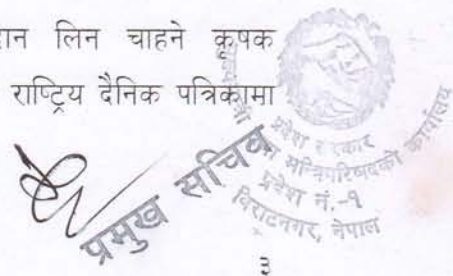 दान लिन चाहने कृषक
राष्ट्रिय दैनिक पत्रिकामा
प्रदेश सरकार
मन्त्रिपरिषदको कार्यालय
प्रदेश नं.-१
विराटनगर, नेपाल
प्रमुख सचिव
३